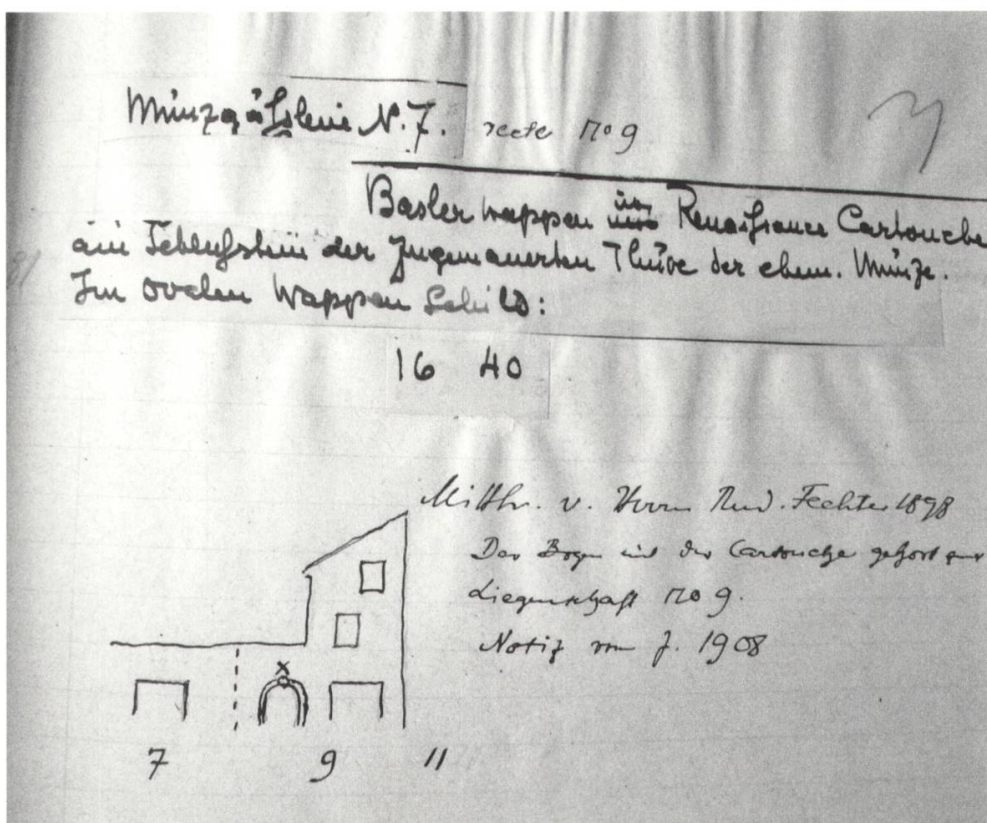 Münzgässlein N. 7. recte No 9
Basler wappen in Renaissance Cartouche
am Schlussstein der zugemauerten Thüre der ehem. Münze.
Im ovalen Wappen Schild:
16 40
Mitth. v. Herrn Rud. Fechter 1898
Der Bogen mit der Cartouche gehört zur
Liegenschaft No 9.
Notiz vom J. 1908
x
7 9 11